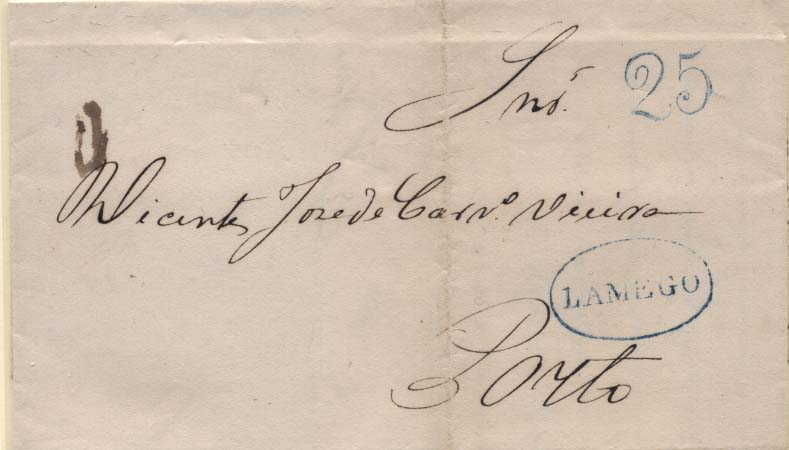 Snr. 25
Vicente Jose de Carvº Vieira
LAMEGO
Porto